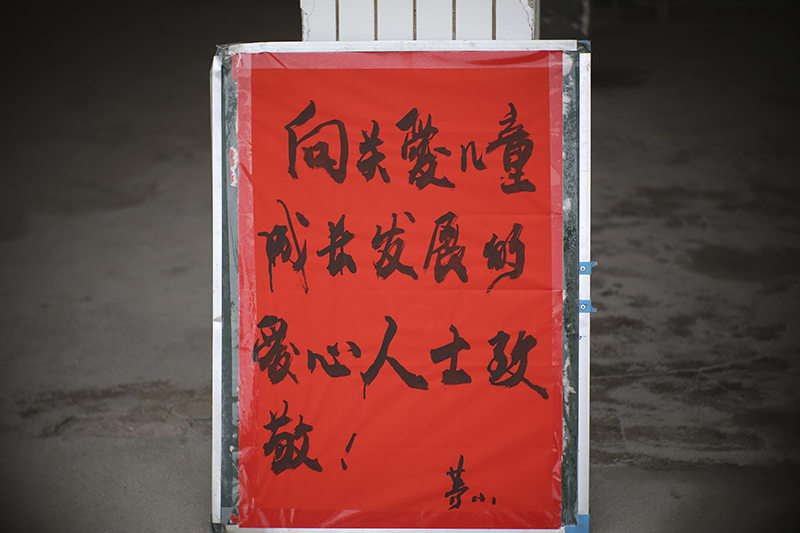 向关爱儿童
成长发展的
爱心人士致
敬！
小